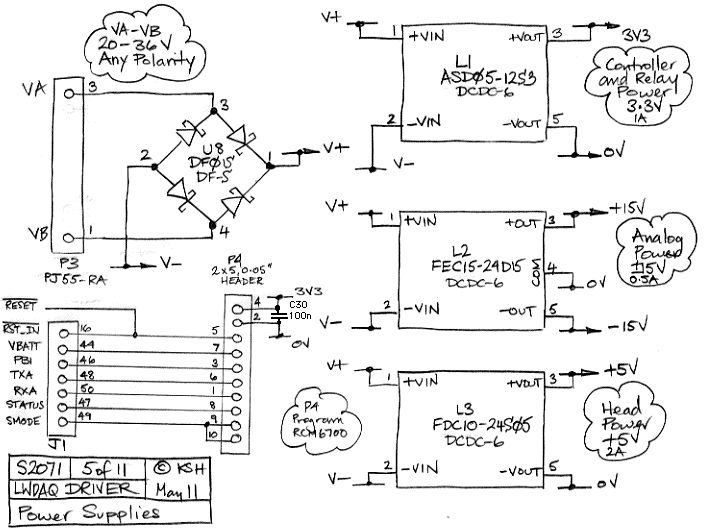 VA-VB
20-36V
Any Polarity
VA
3
3
U8
DFØ1S
DF-S
2
1
V+
4
VB
1
V-
P3
PJ55-RA
V+
1
+VIN
+VOUT
3
3V3
L1
ASDØ5-12S3
DCDC-6
2
-VIN
-VOUT
5
V-
0V
Controller
and Relay
Power
3.3V
1A
V+
1
+VIN
+OUT
3
+15V
L2
FEC15-24D15
DCDC-6
COM
4
0V
2
-VIN
-OUT
5
V-
-15V
Analog
Power
±15V
0.5A
V+
1
+VIN
+VOUT
3
+5V
L3
FDC10-24SØ5
DCDC-6
2
-VIN
-VOUT
5
V-
0V
Head
Power
+5V
2A
P4
2x5, 0.05"
HEADER
4
3V3
C30
100n
2
0V
RESET
RST_IN
16
5
VBATT
44
7
PB1
46
3
TXA
48
6
RXA
50
1
STATUS
47
8
SMODE
49
9
10
J1
P4
Program
RCM6700
S2071
5 of 11
© KSH
LWDAQ DRIVER
May 11
Power Supplies